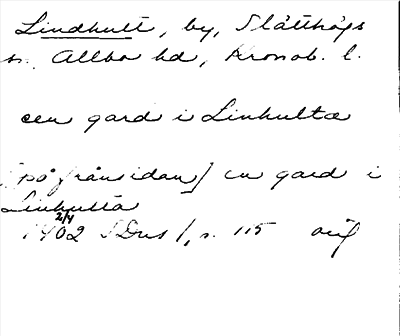 Lindhult, by, Slätthögs
sn. Allbo hd, Kronob. l.
een gard i Linhulta
[på frånsidan] en gard i
Linhulta
1402 2/4 s. 115 orig